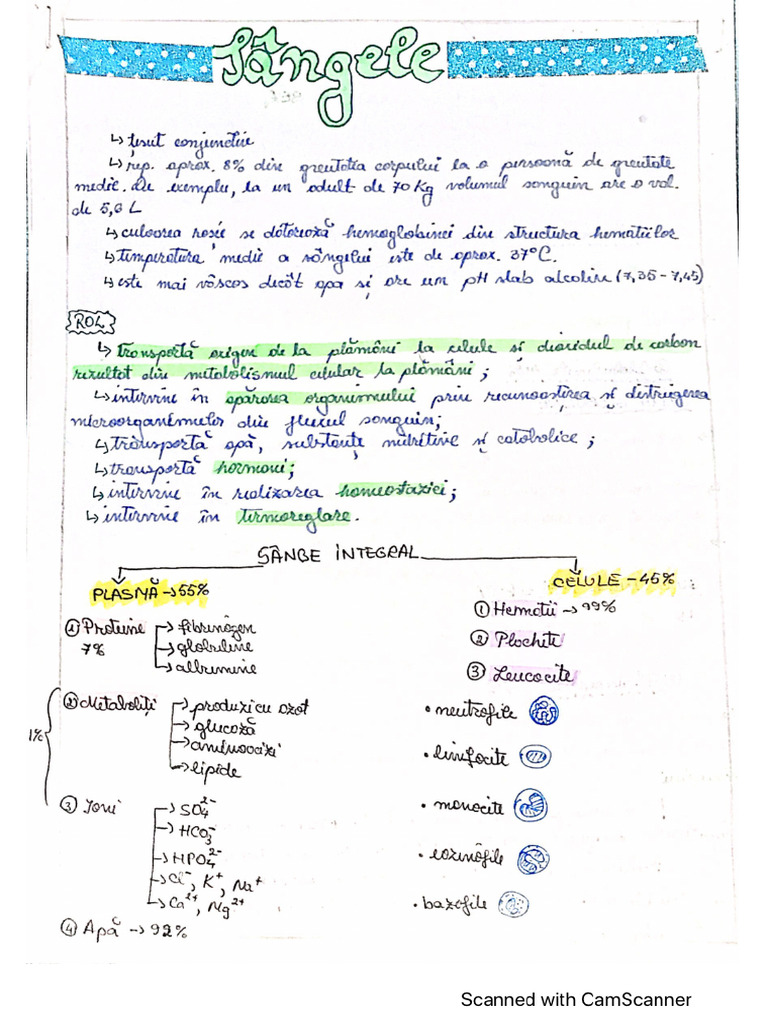 Sângele
↳ țesut conjunctiv
↳ rep. aprox. 8% din greutatea corpului la o persoană de greutate
medie. De exemplu, la un adult de 70 Kg volumul sanguin are o vol.
de 5,6 L
↳ culoarea roșie se datorează hemoglobinei din structura hematiilor
↳ temperatura medie a sângelui este de aprox. 37°C.
↳ este mai vâscos decât apa și are un pH slab alcalin (7,35 - 7,45)
ROL
↳ transportă oxigen de la plămâni la celule și dioxidul de carbon
rezultat din metabolismul celular la plămâni;
↳ intervine în apărarea organismului prin recunoașterea și distrugerea
microorganismelor din fluxul sanguin;
↳ transportă apă, substanțe nutritive și catabolice;
↳ transportă hormoni;
↳ intervine în realizarea homeostaziei;
↳ intervine în termoreglare.
SÂNGE INTEGRAL
PLASMĂ → 55%
CELULE - 45%
① Proteine 7%
→ fibrinogen
→ globuline
→ albumine
② Metaboliți
→ produzi cu azot
→ glucoză
→ aminoacizi
→ lipide
1%
③ Ioni
→ SO₄²⁻
→ HCO₃⁻
→ HPO₄²⁻
→ Cl⁻, K⁺, Na⁺
→ Ca²⁺, Mg²⁺
④ Apă → 92%
① Hematii → 99%
② Plachite
③ Leucocite
• neutrofile
• limfocite
• monocite
• eozinofile
• bazofile
Scanned with CamScanner